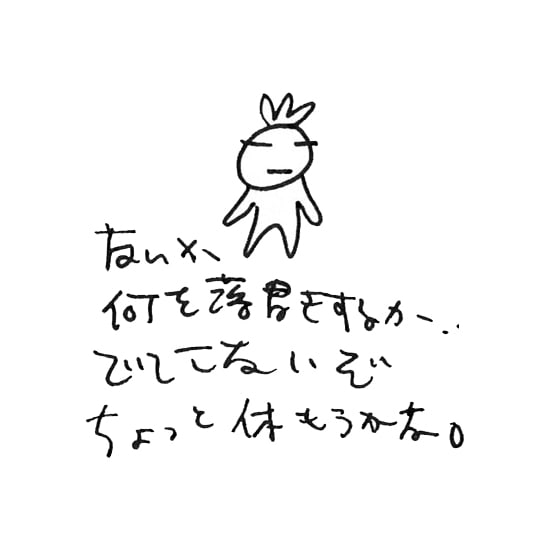 ないか、
何を落書きをするか…
でてこないぞ
ちょっと休もうかな。